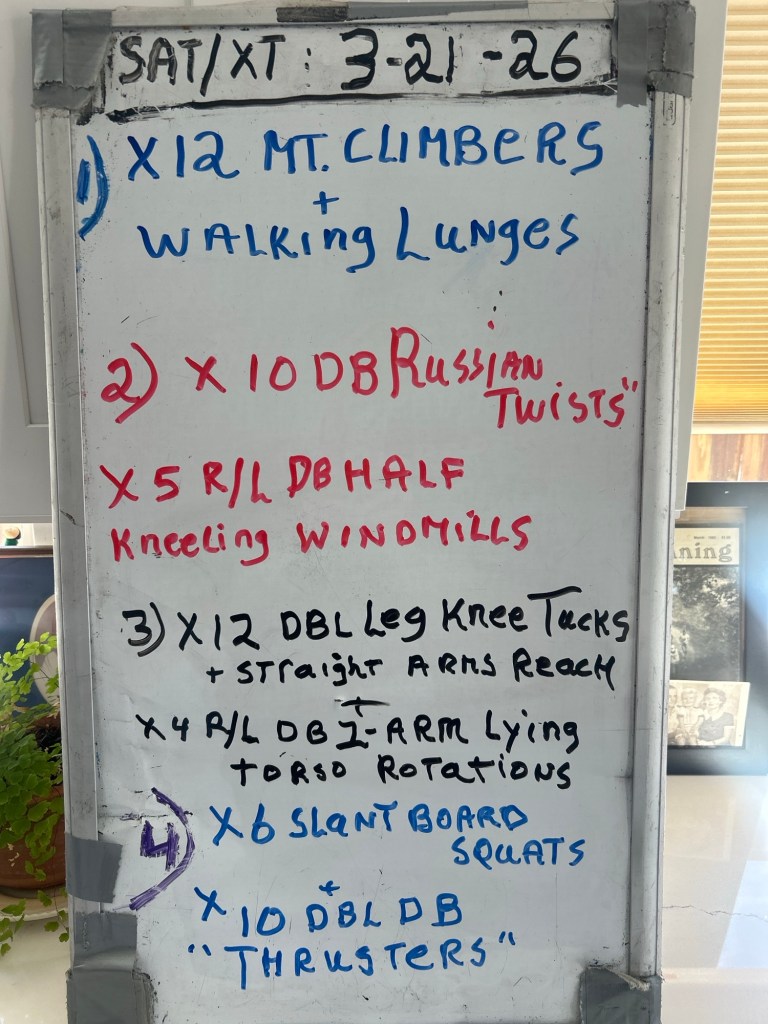 SAT/XT: 3-21-26
1) X12 MT. CLIMBERS
+
WALKing LUNges
2) X 10 DB RUSSIAN
TWISTS"
X 5 R/L DB HALF
Kneeling WINDMILLS
3) X12 DBL Leg Knee Tucks
+ STraighT ARMS REACH
+
X4 R/L DB 1-ARM Lying
TORSO ROTATIONS
4) X6 SLANT BOARD
SQUATS
+
X 10 DBL DB
"THRUSTERS"
ning